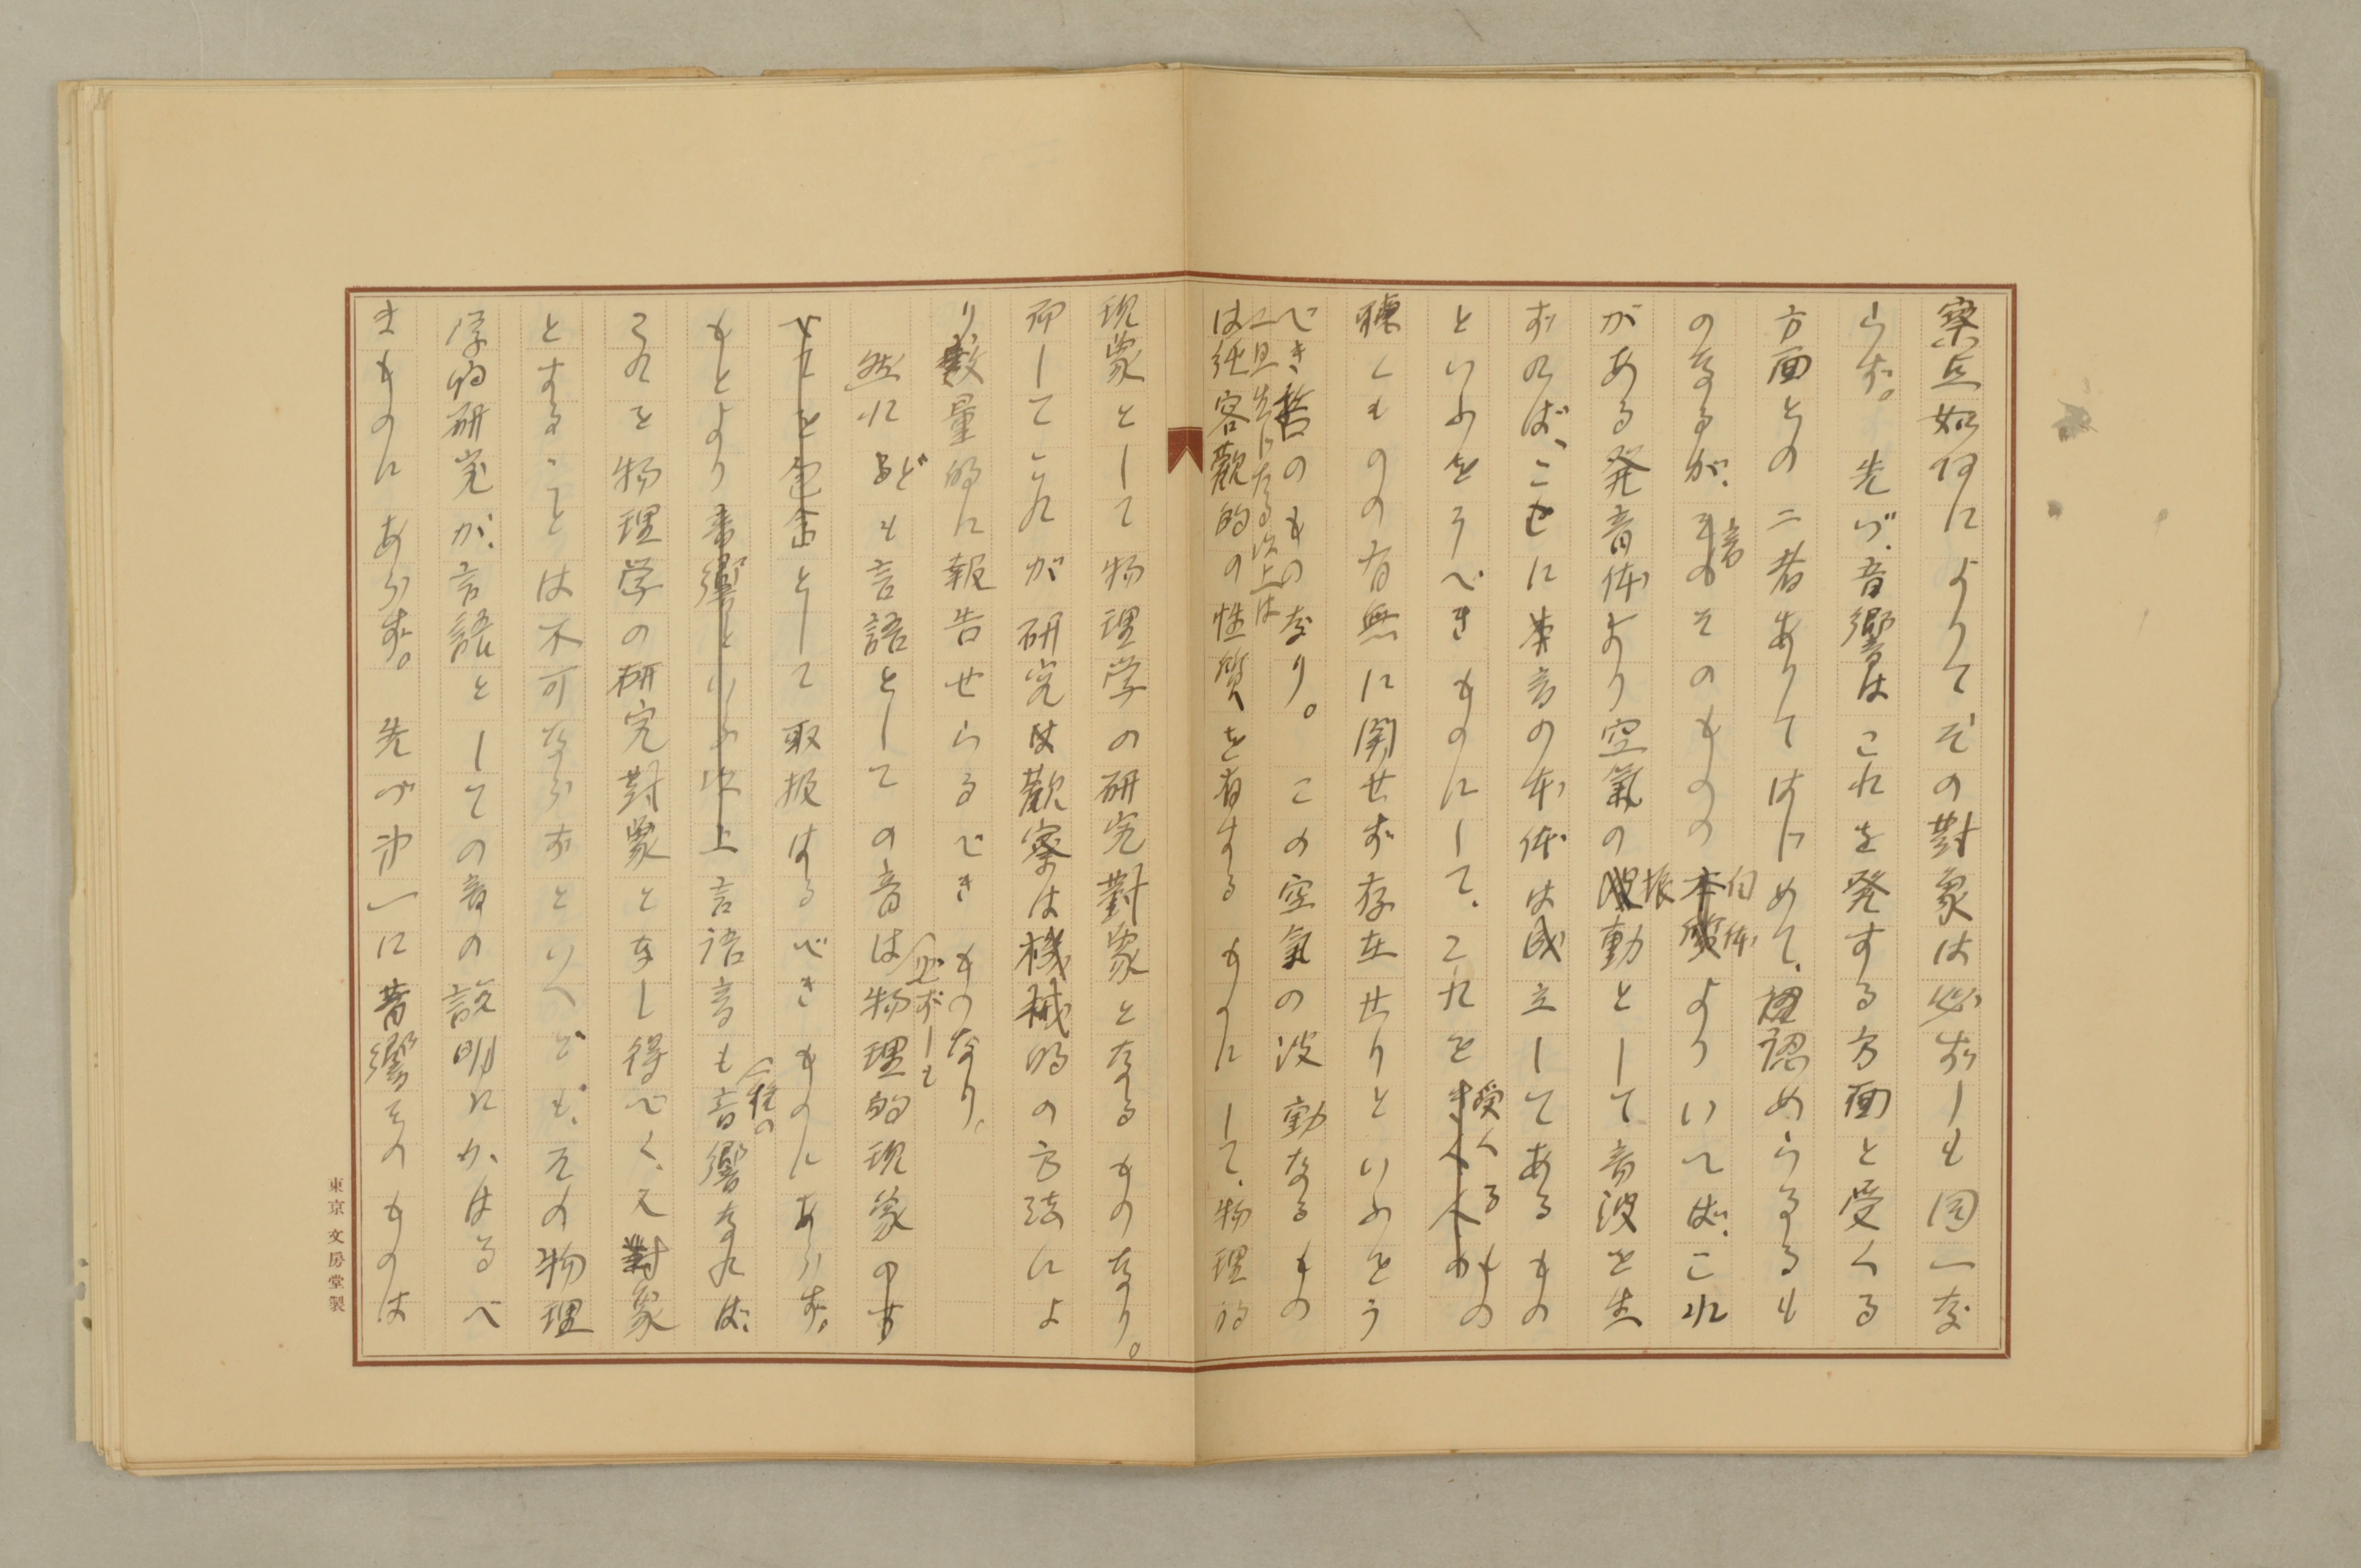 察点如何によりてその對象は必ずしも同一な
らず。先づ、音響はこれを発する方面と受くる
方面との二者ありてはじめて、認めらるるも
のなるが、音そのものの自体よりいへば、これ
がある発音体より空氣の振動として音波を生
ずれば、こゝに音の本体は成立してあるもの
といふをうべきものにして、これを受くるもの
聴くものの有無に関せず存在せりといふをう
べき筈のものなり。この空氣の波動なるもの
一旦生じたる以上は
は純客觀的の性質を有するものにして、物理的
現象として物理学の研究對象となるものなり。
而してこれが研究は觀察は機械的の方法によ
り、數量的に報告せらるべきものなり。
然れども言語としての音は必ずしも物理的現象の
として取扱はるべきものにあらず。
もとより言語音も一種の音響なれば、
これを物理学の研究對象となし得べく、又對象
とすることは不可ならずといへども、その物理
学的研究が、言語としての音の説明にかはるべ
きものにあらず。先づ第一に音響そのものは
東京 文房堂製